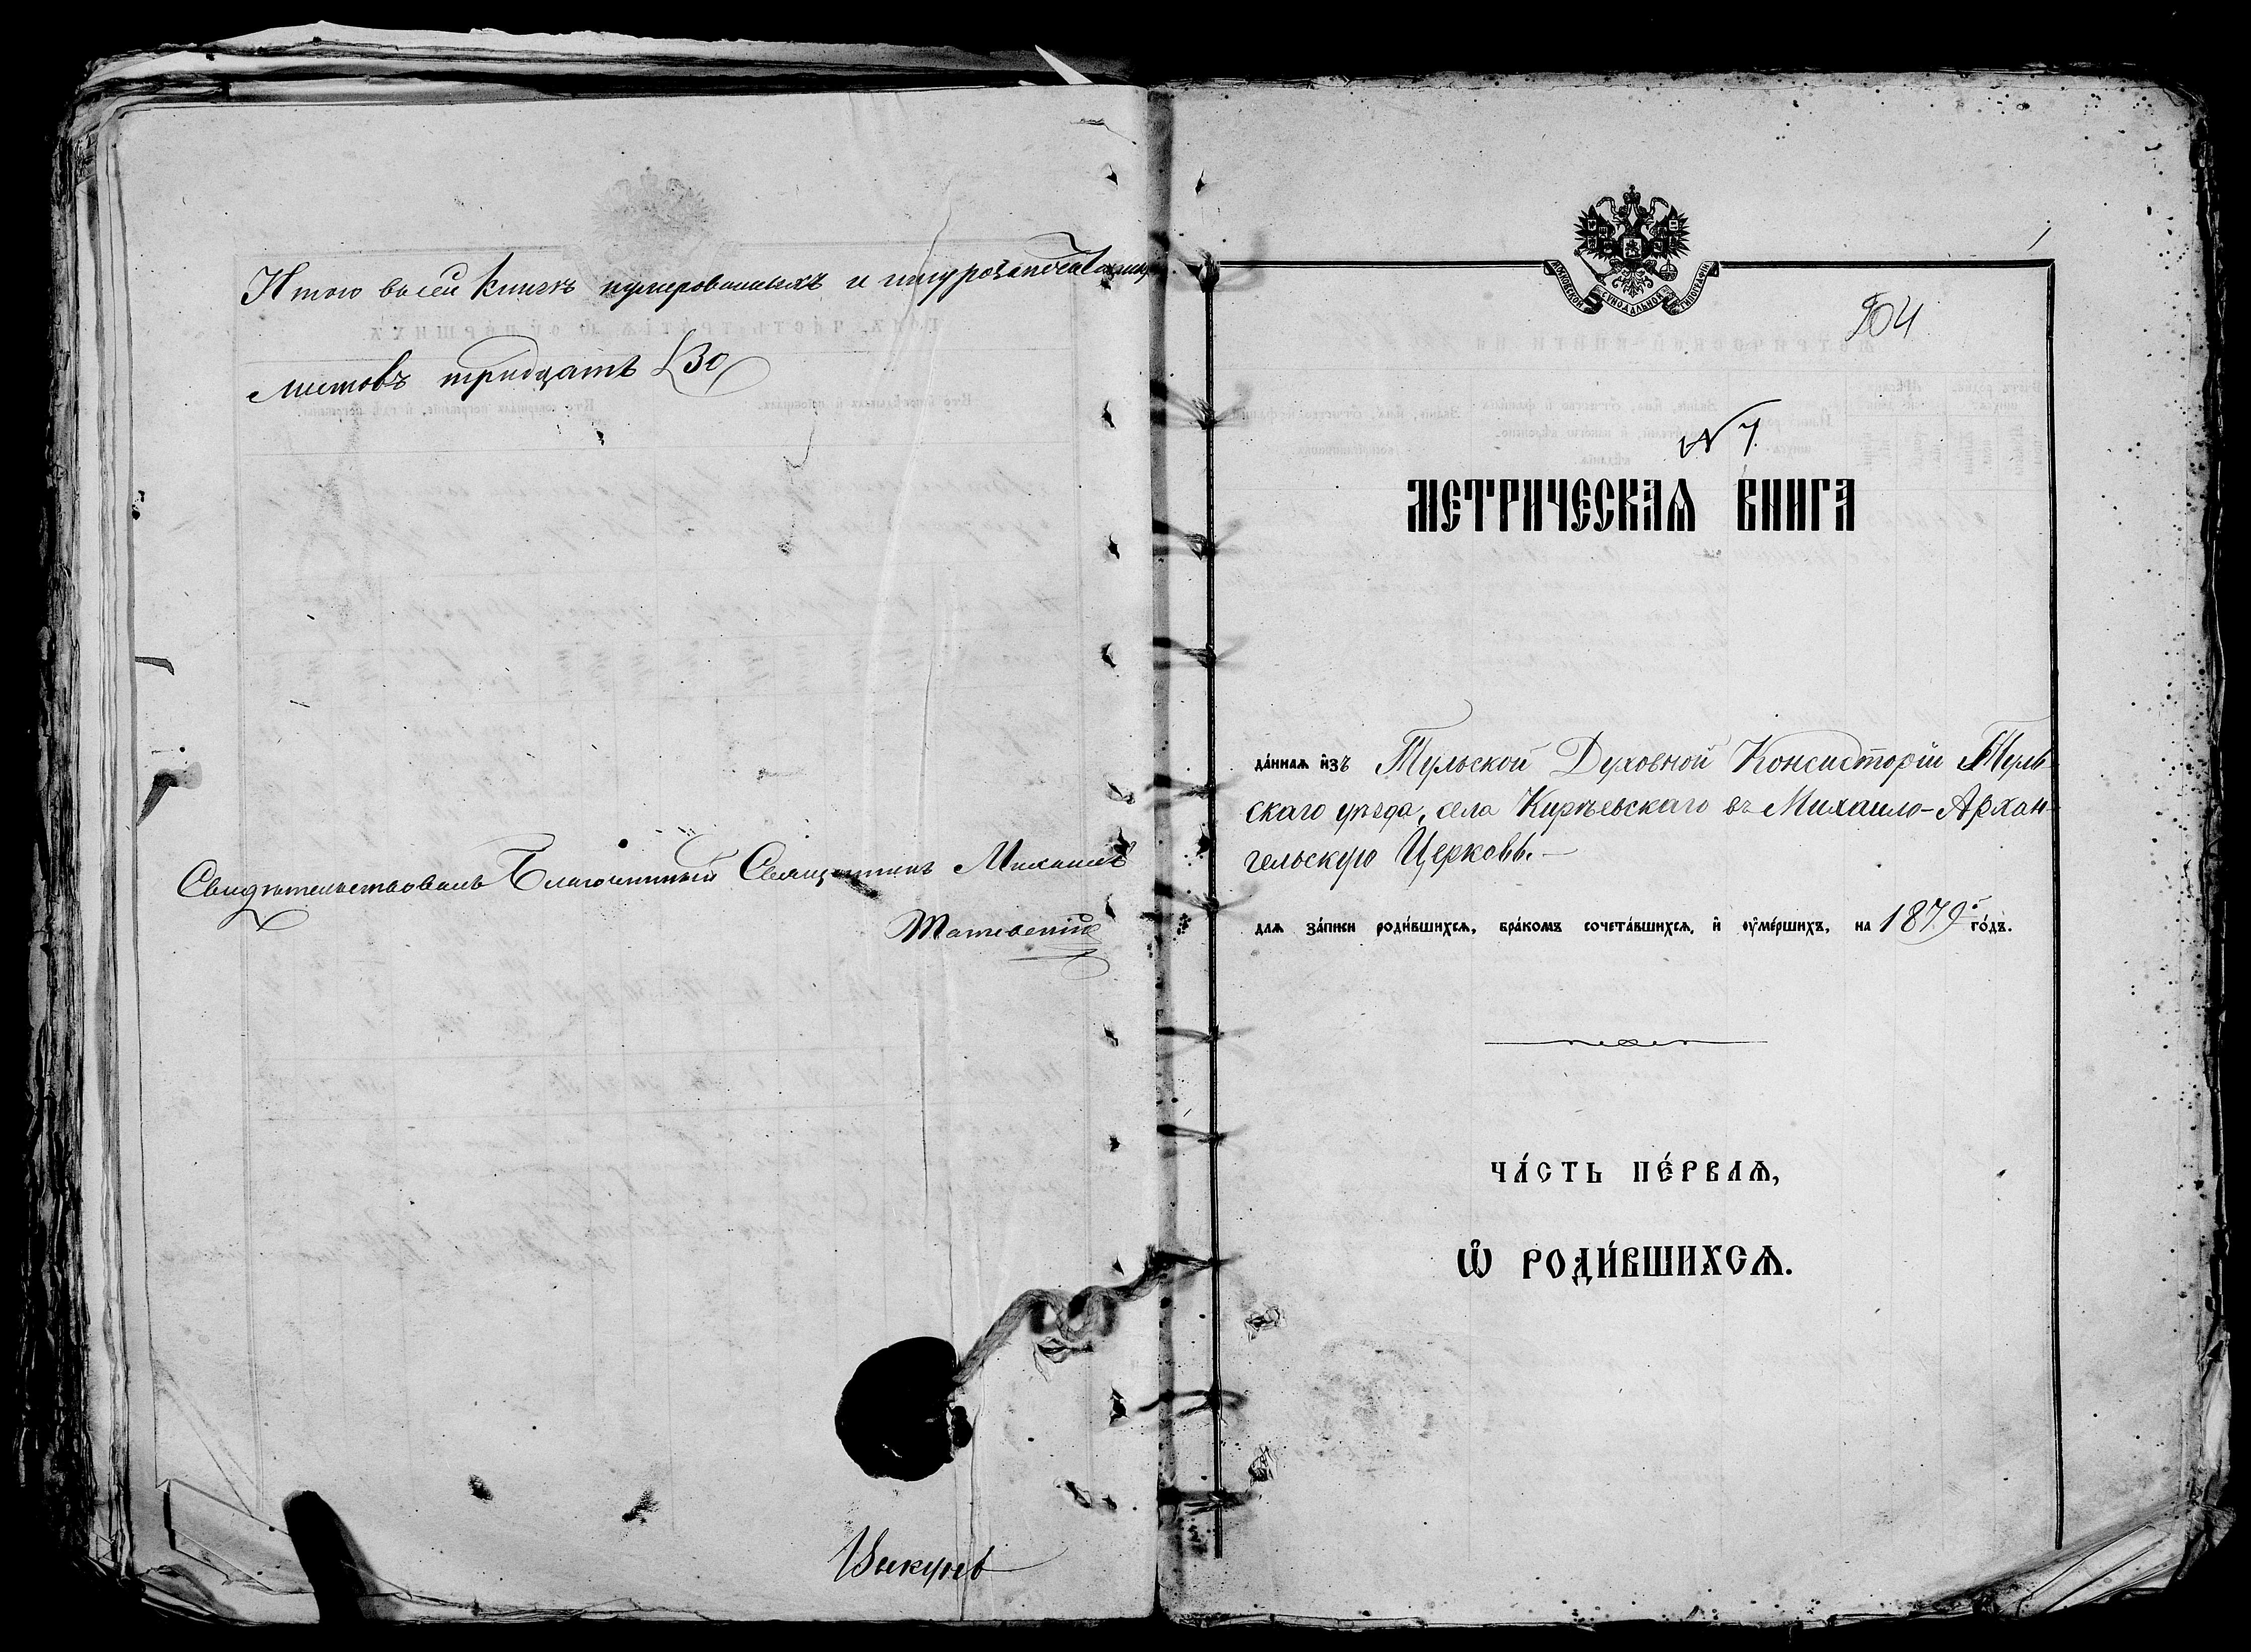 Итого въ сей книгѣ нумерованныхъ и шнурозапечатанныхъ
листовъ тридцать (30)
Свидѣтельствовалъ Благочинный Священникъ Михаилъ
МОСКОВСКОЙ СУНОДАЛЬНОЙ ТИПОГРАФІИ
1
504
№ 7.
МЕТРИЧЕСКАѦ КНИГА
да́ннаѧ и҆зъ Тульской Духовной Консисторіи Туль-
скаго уѣзда, села Кирѣевскаго въ Михаило-Архан-
гельскую Церковь.—
длѧ за́писи роди́вшихсѧ, бра́комъ сочета́вшихсѧ, и҆ оу҆ме́ршихъ, на 1879й го́дъ.
ЧА́СТЬ ПЕ́РВАѦ,
Ѡ҆ РОДИ́ВШИХСѦ.